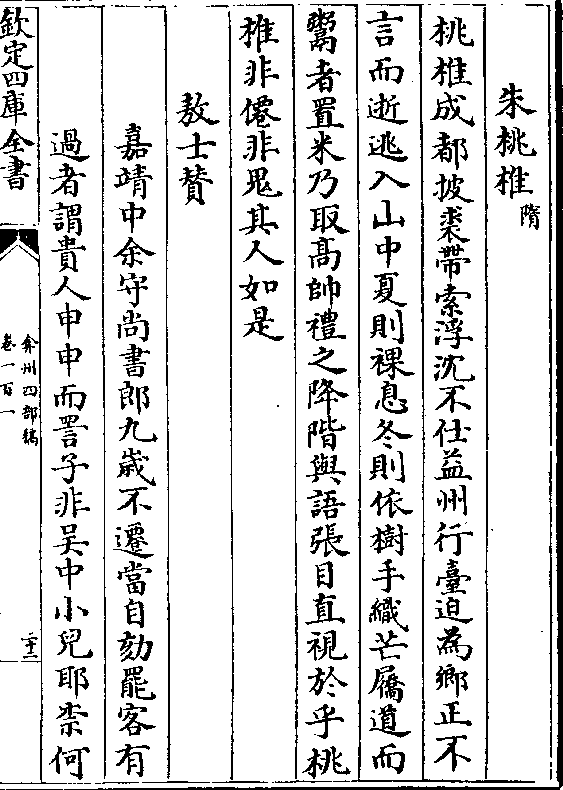 朱桃椎隋
桃椎成都披裘帶索浮沈不仕益州行臺迫為鄉正不
言而逝逃入山中夏則裸息冬則依樹手織芒屩道而
鬻者置米乃取髙帥禮之降階與語張目直視於乎桃
椎非僊非鬼其人如是
敖士贊
嘉靖中余守尚書郎九歲不遷當自劾罷客有
過者謂貴人申申而詈子非吴中小兒耶柰何
欽定四庫全書
弇州四部稿
卷一百一
二十二